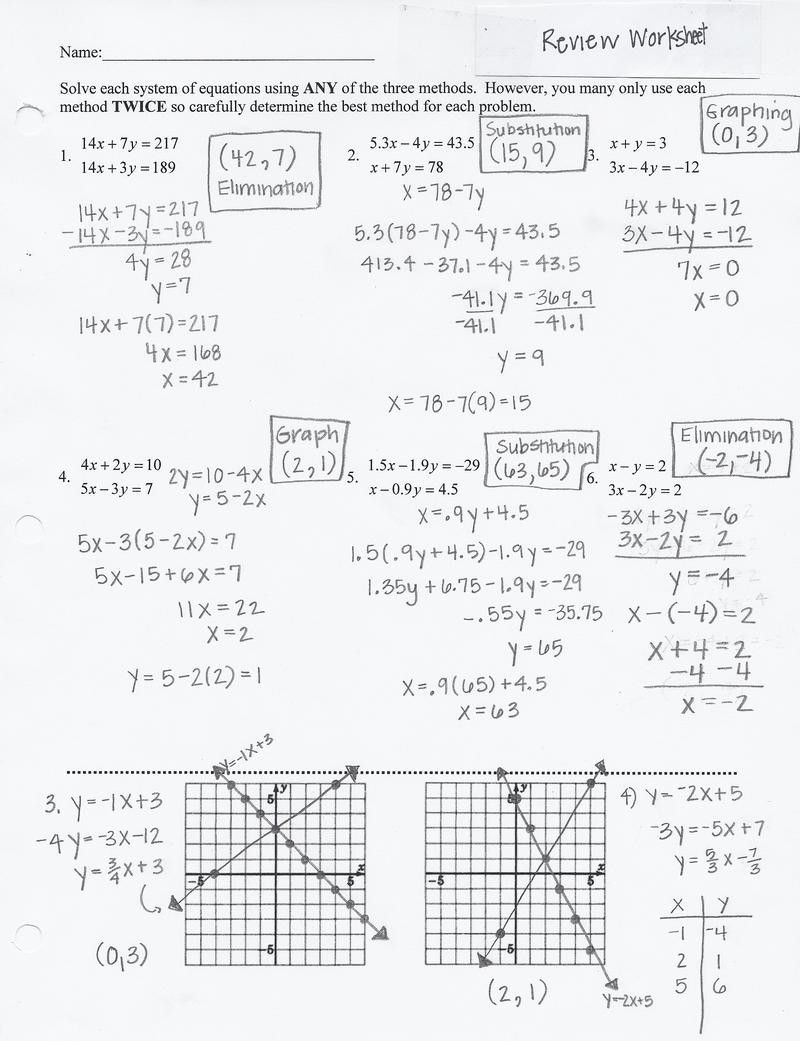 Review Worksheet
Name:
Solve each system of equations using ANY of the three methods. However, you many only use each
method TWICE so carefully determine the best method for each problem.
1.
14x + 7y = 217
14x + 3y = 189
(42,7)
Elimination
14x+7y=217
-14x-3y=-189
4y=28
y=7
14x+7(7)=217
4x=168
x=42
2.
5.3x – 4y = 43.5
x + 7y = 78
Substitution
(15,9)
x=78-7y
5.3(78-7y)-4y=43.5
413.4-37.1-4y=43.5
-41.1y=-369.9
-41.1 -41.1
y=9
x=78-7(9)=15
3.
x + y = 3
3x – 4y = –12
Graphing
(0,3)
4x+4y=12
3x-4y=-12
7x=0
x=0
4.
4x + 2y = 10
5x – 3y = 7
Graph
(2,1)
2y=10-4x
y=5-2x
5x-3(5-2x)=7
5x-15+6x=7
11x=22
x=2
y=5-2(2)=1
5.
1.5x – 1.9y = –29
x – 0.9y = 4.5
Substitution
(63,65)
x=.9y+4.5
1.5(.9y+4.5)-1.9y=-29
1.35y+6.75-1.9y=-29
-.55y=-35.75
y=65
x=.9(65)+4.5
x=63
6.
x – y = 2
3x – 2y = 2
Elimination
(-2,-4)
-3x+3y=-6
3x-2y=2
y=-4
x-(-4)=2
x+4=2
-4 -4
x=-2
3. y=-1x+3
-4y=-3x-12
y=3/4x+3
(0,3)
y=-1x+3
y
5
x
-5
5
-5
y
5
x
-5
5
-5
(2,1)
y=-2x+5
4) y=-2x+5
-3y=-5x+7
y=5/3x-7/3
x y
-1 -4
2 1
5 6